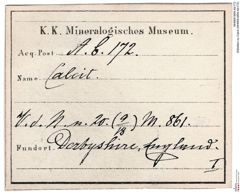 K. K. Mineralogisches Museum.
Acq. Post A. C. 172.
Name. Calcit.
V. d. N. n. 20. (9/18) M. 861.
Fundort. Derbyshire, England.
I